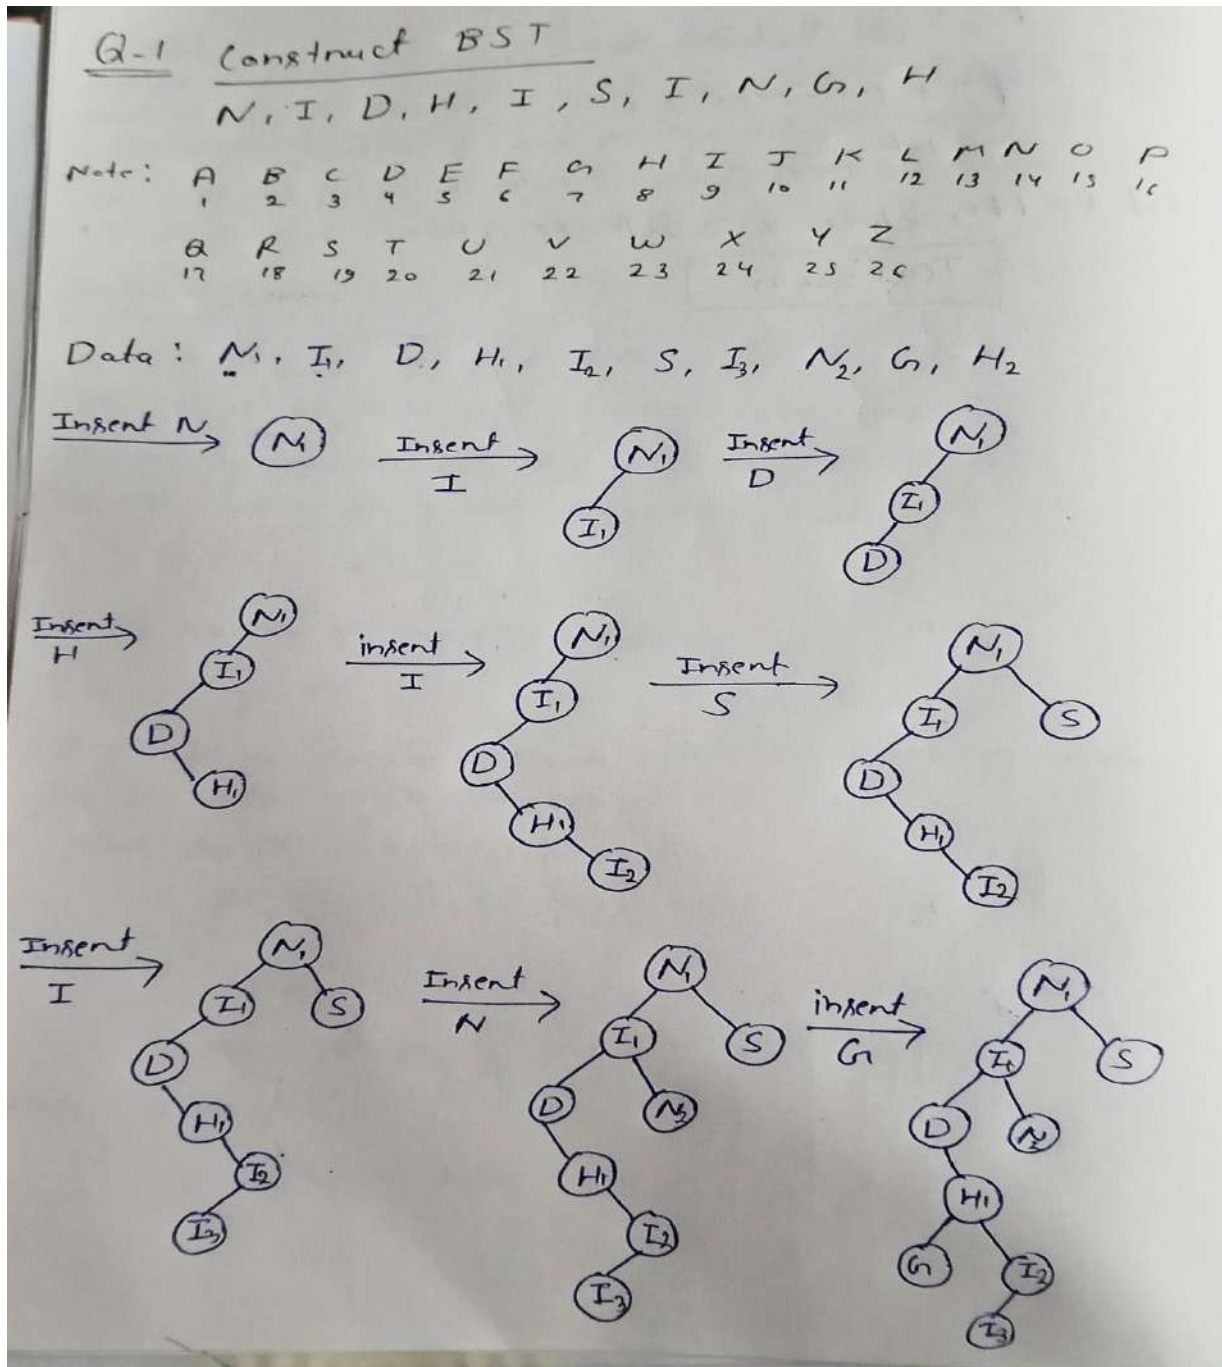 Q-1 Construct BST
N, I, D, H, I, S, I, N, G, H
Note: A B C D E F G H I J K L M N O P
1 2 3 4 5 6 7 8 9 10 11 12 13 14 15 16
Q R S T U V W X Y Z
17 18 19 20 21 22 23 24 25 26
Data: N1, I1, D, H1, I2, S, I3, N2, G, H2
Insert N N1 Insert I N1 I1 Insert D N1 I1 D
Insert H N1 I1 D H1 insert I N1 I1 D H1 I2 Insert S N1 I1 S D H1 I2
Insert I N1 I1 S D H1 I2 I3 Insert N N1 I1 S D N2 H1 I2 I3 insert G N1 I1 S D N2 H1 G I2 I3